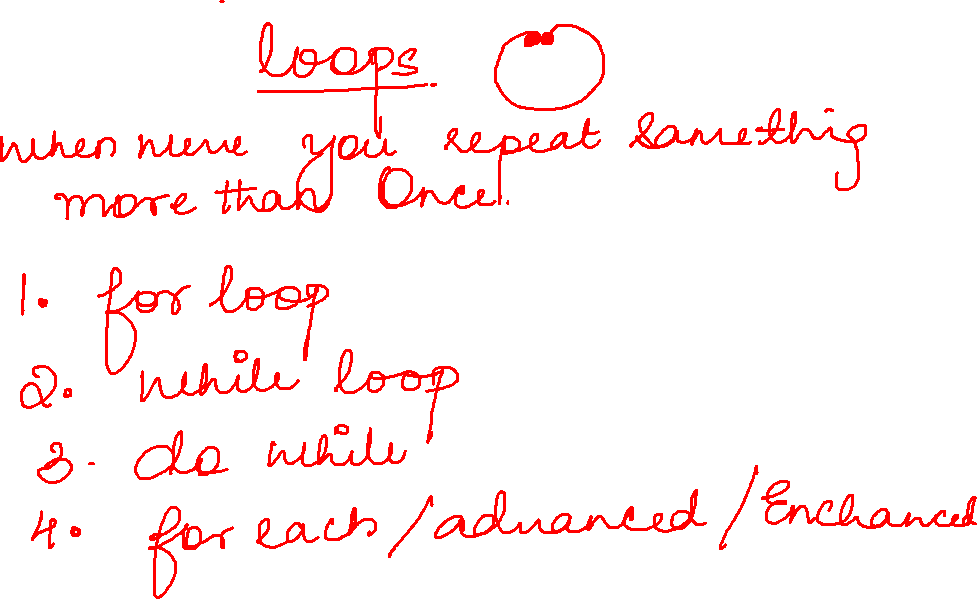 loops
whenever you repeat something
more than Once.
1. for loop
2. while loop
3. do while
4. for each / advanced / Enchanced